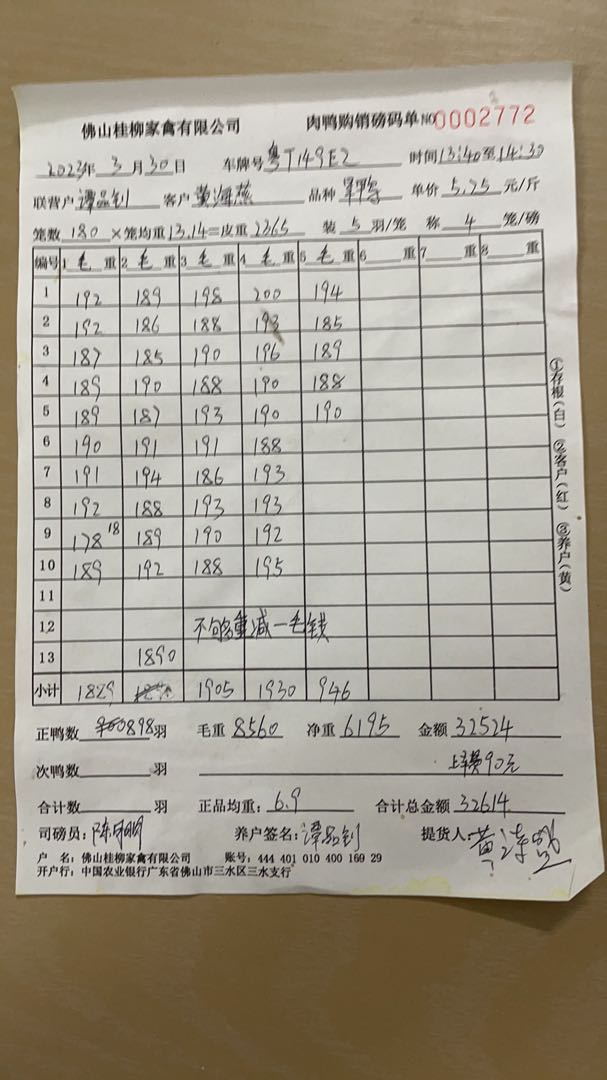 佛山桂柳家禽有限公司 肉鸭购销磅码单 NO 0002772
2023年 3月30日 车牌号 粤T149E2 时间13:40至14:30
联营户 谭品钊 客户 黄海燕 品种 单价 5.25 元/斤
笼数 180 ×笼均重13.14=皮重 2365 装 5 羽/笼 称 4 笼/磅
编号 1 毛 重 2 毛 重 3 毛 重 4 毛 重 5 毛 重 6 重 7 重 8 重
1 192 189 198 200 194
2 192 186 188 193 185
3 187 185 190 196 189
4 189 190 188 190 188
5 189 187 193 190 190
6 190 191 191 188
7 191 194 186 193
8 192 188 193 193
9 178 18 189 190 192
10 189 192 188 195
11
12 不够重减一毛钱
13 1890
小计 1829 1905 1930 946
正鸭数 898 羽 毛重 8560 净重 6195 金额 32524
次鸭数 羽 90元
合计数 羽 正品均重: 6.9 合计总金额 32614
司磅员: 养户签名: 谭品钊 提货人:
户 名: 佛山桂柳家禽有限公司 账号: 444 401 010 400 169 29
开户行: 中国农业银行广东省佛山市三水区三水支行
①存根(白) ②客户(红) ③养户(黄)